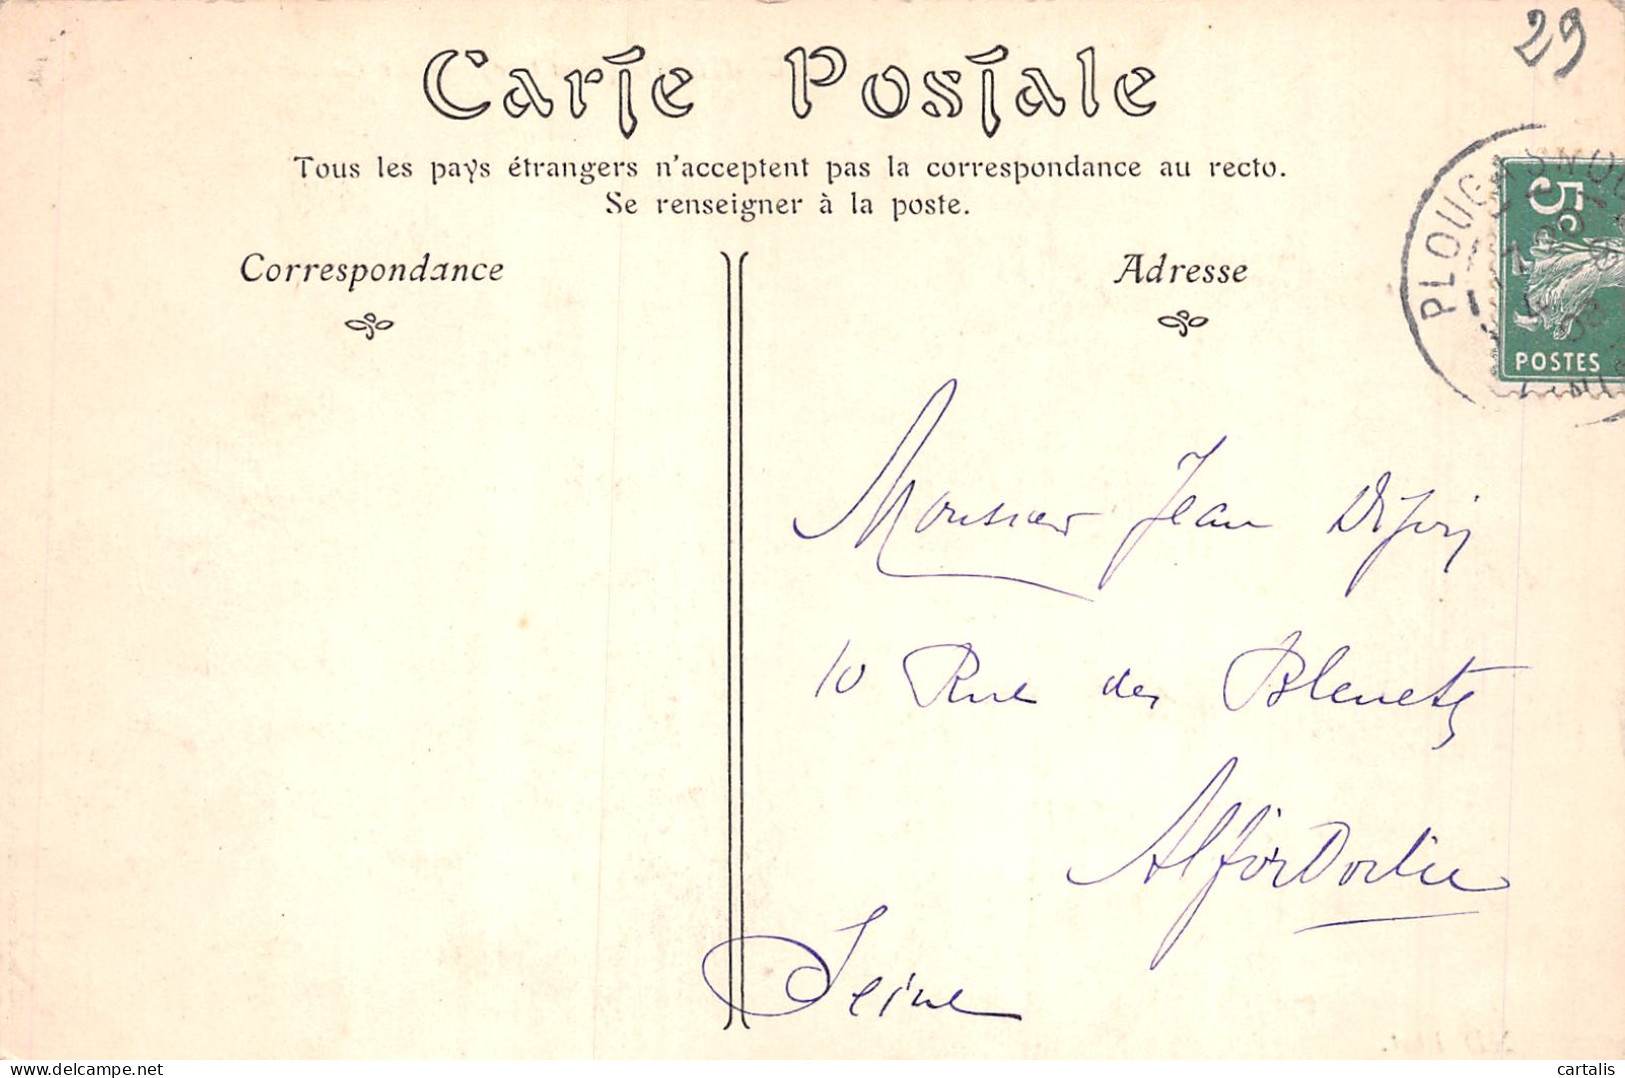 29
Carte Postale
Tous les pays étrangers n'acceptent pas la correspondance au recto.
Se renseigner à la poste.
PLOUGASNOU
5c
POSTES
Correspondance
Adresse
Monsieur Jean
10 Rue des Bleuets
Alfortville
Seine
delcampe.net
cartalis